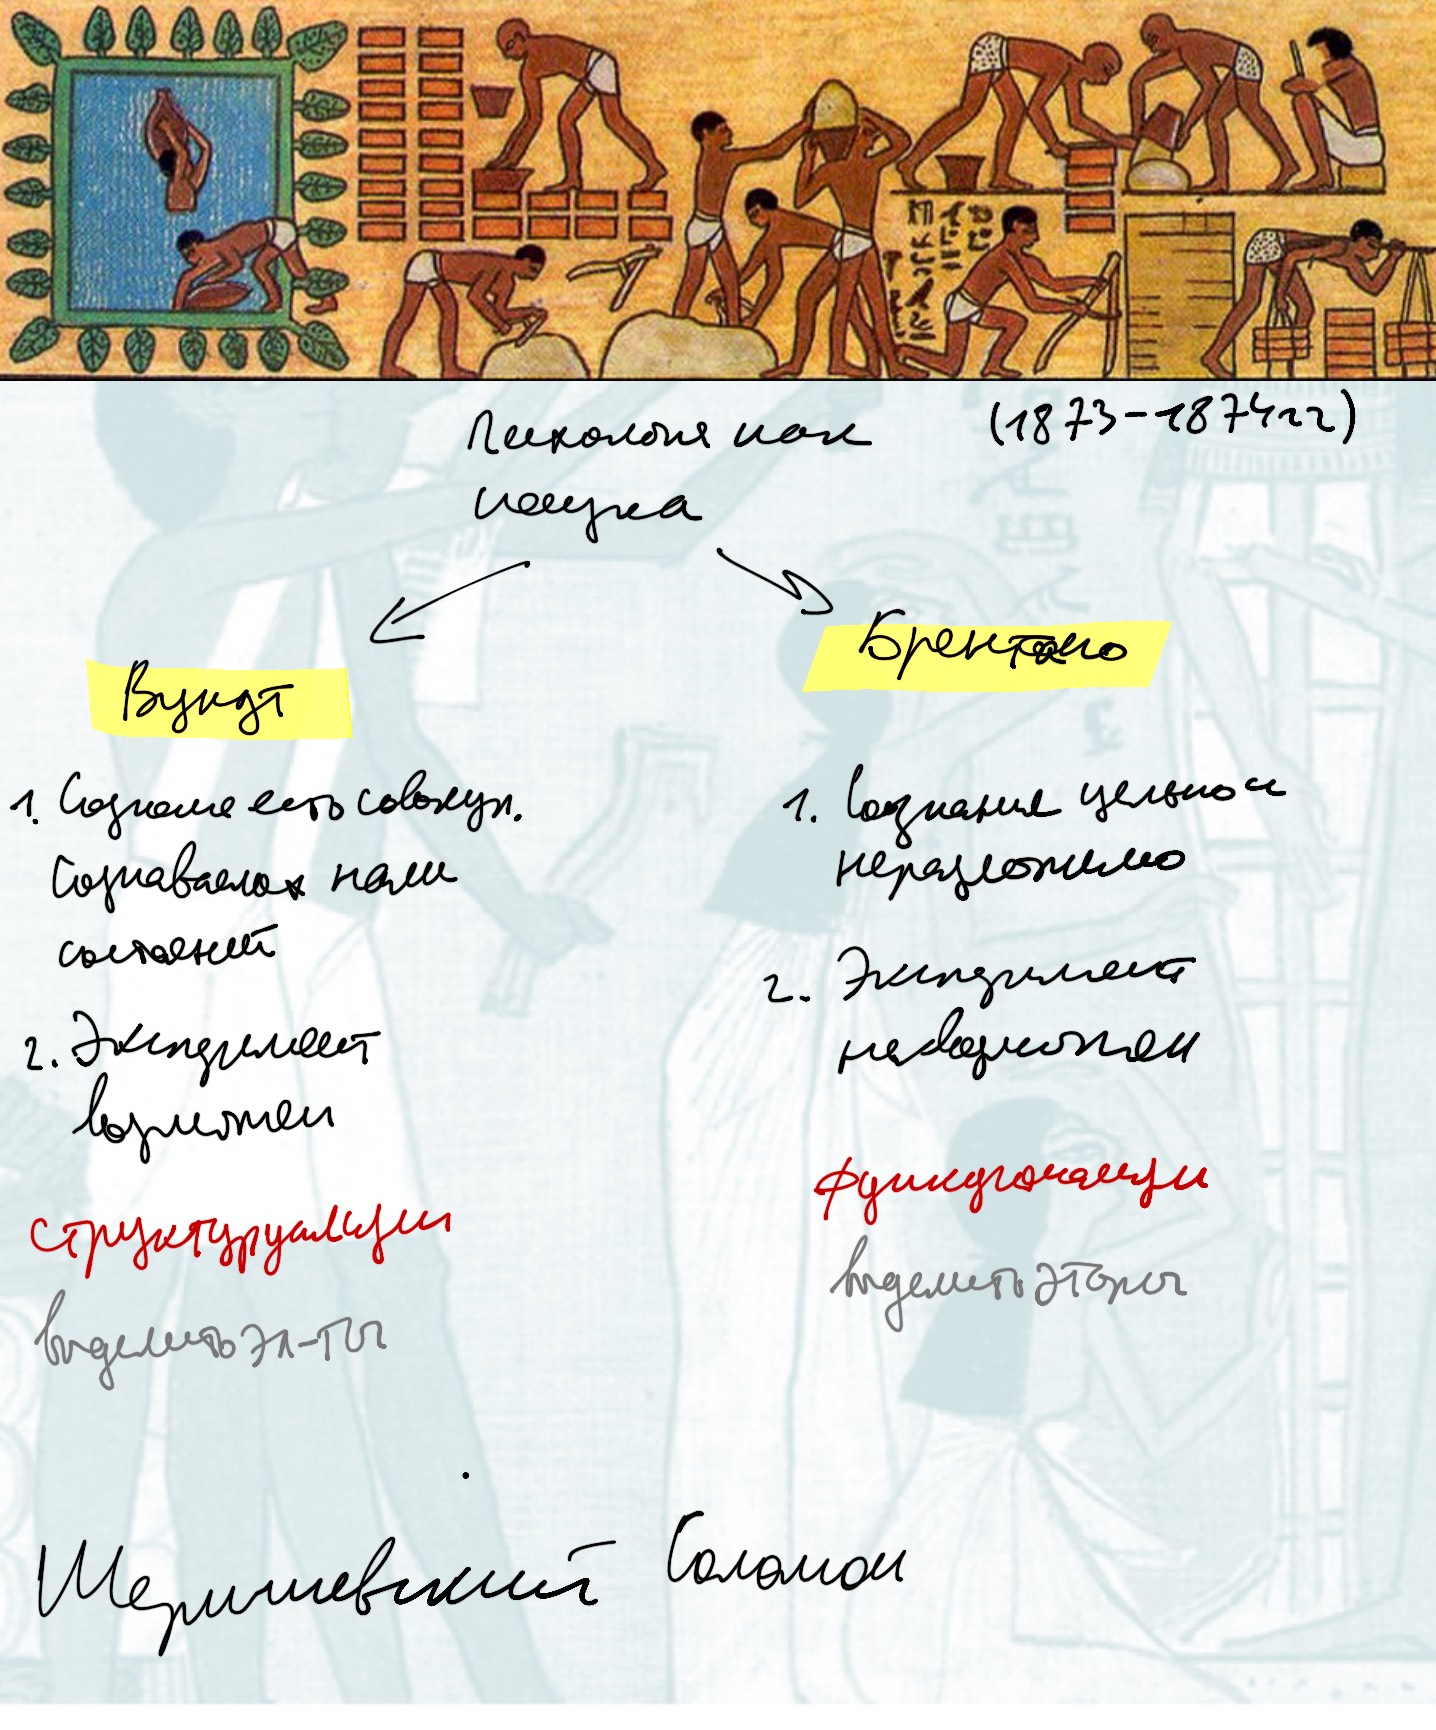 Психология как
(1873-1874гг)
наука
Вундт
Брентано
1. Сознание есть совокуп.
сознаваемых нами
состояний
2. Эксперимент
возможен
структурализм
выделить эл-ты
1. Сознание цельно и
неразложимо
2. Эксперимент
невозможен
функционализм
выделить этапы
Шерешевский Соломон